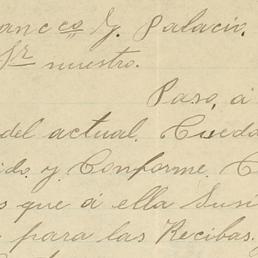 ancco G. Palacio.
Sr nuestro.
Paso, á
del actual. Queda
ido y Conforme. C
s que á ella Susi
para las Recibas.